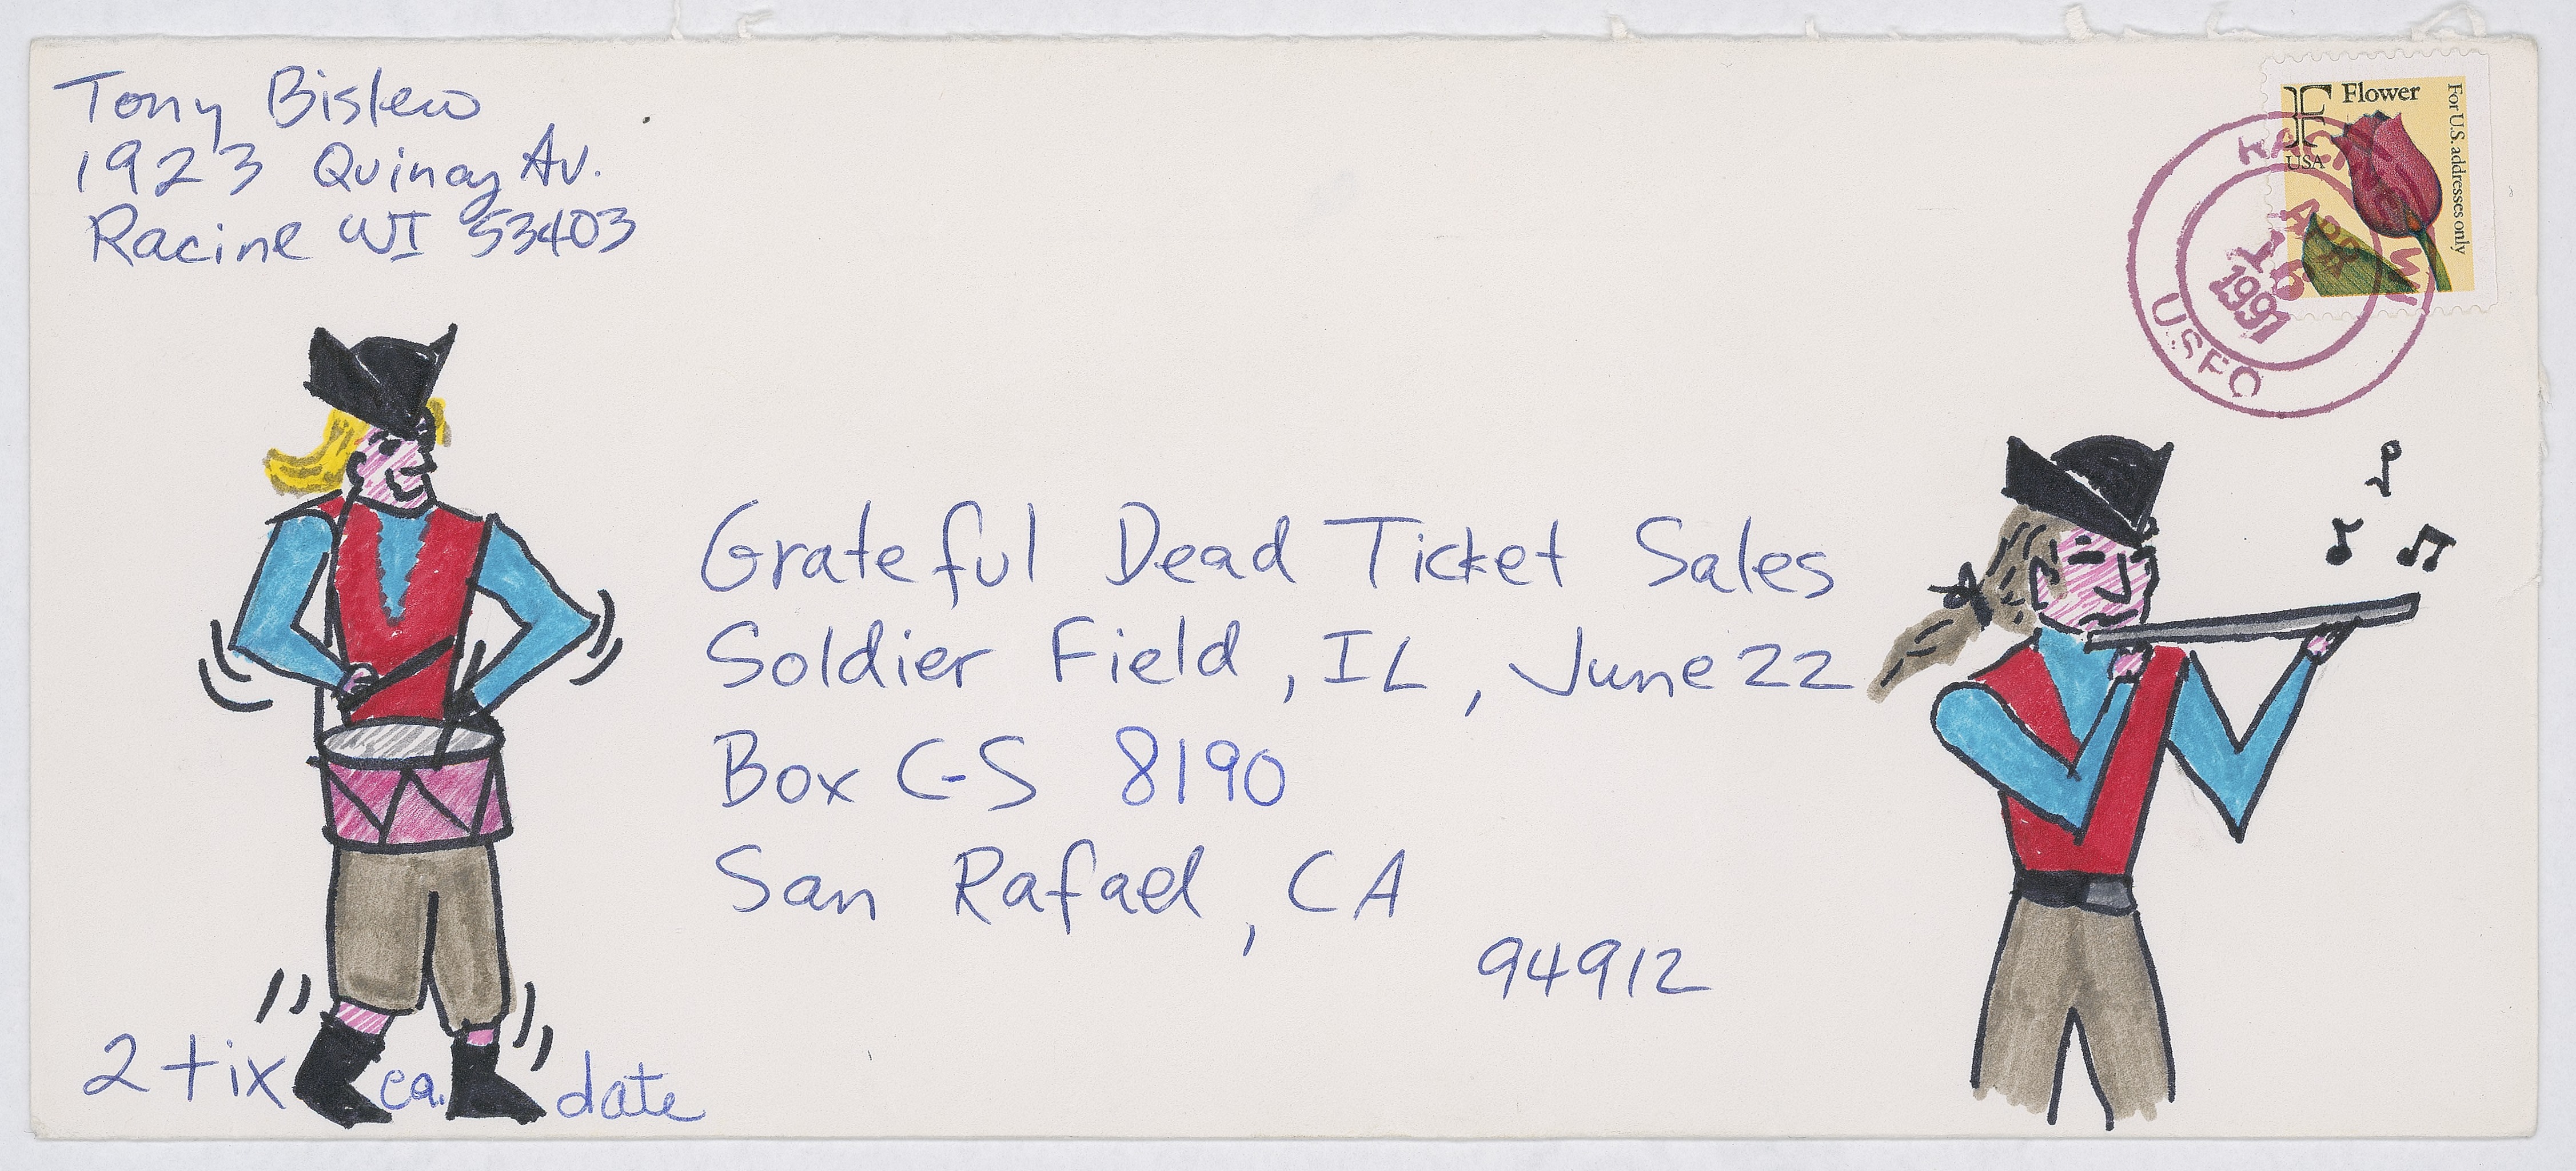 Tony Biskew
1923 Quincy Av.
Racine WI 53403
F Flower
USA
For U.S. addresses only
RACINE WI
APR
16
1991
USPO
Grateful Dead Ticket Sales
Soldier Field, IL, June 22
Box C-S 8190
San Rafael, CA
94912
2 tix ea. date